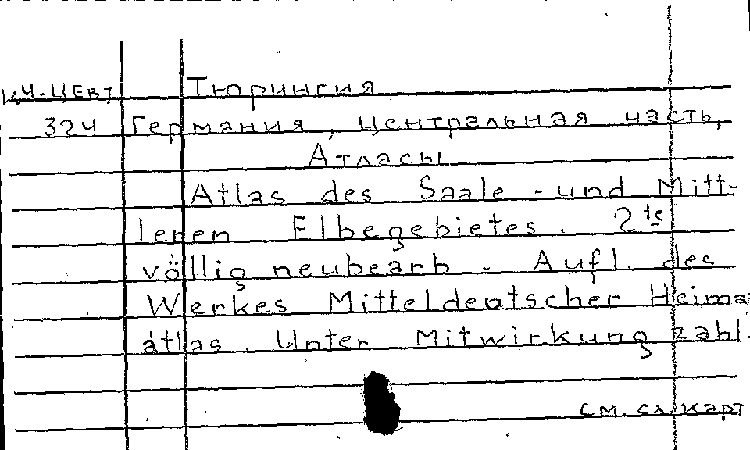 Тюрингия
324 Германия, центральная часть,
Атласы
Atlas des Saale-und Mitt-
leren Elbegebietes. 2te
völlig neubearb. Aufl. des
Werkes Mitteldeutscher Heimat
atlas. Unter Mitwirkung zahl.
см. сл. карт